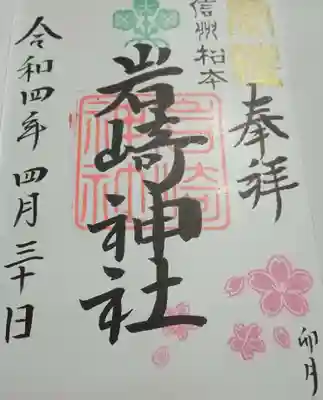 奉拝
卯月
信州松本
岩崎神社
令和四年 四月三十日